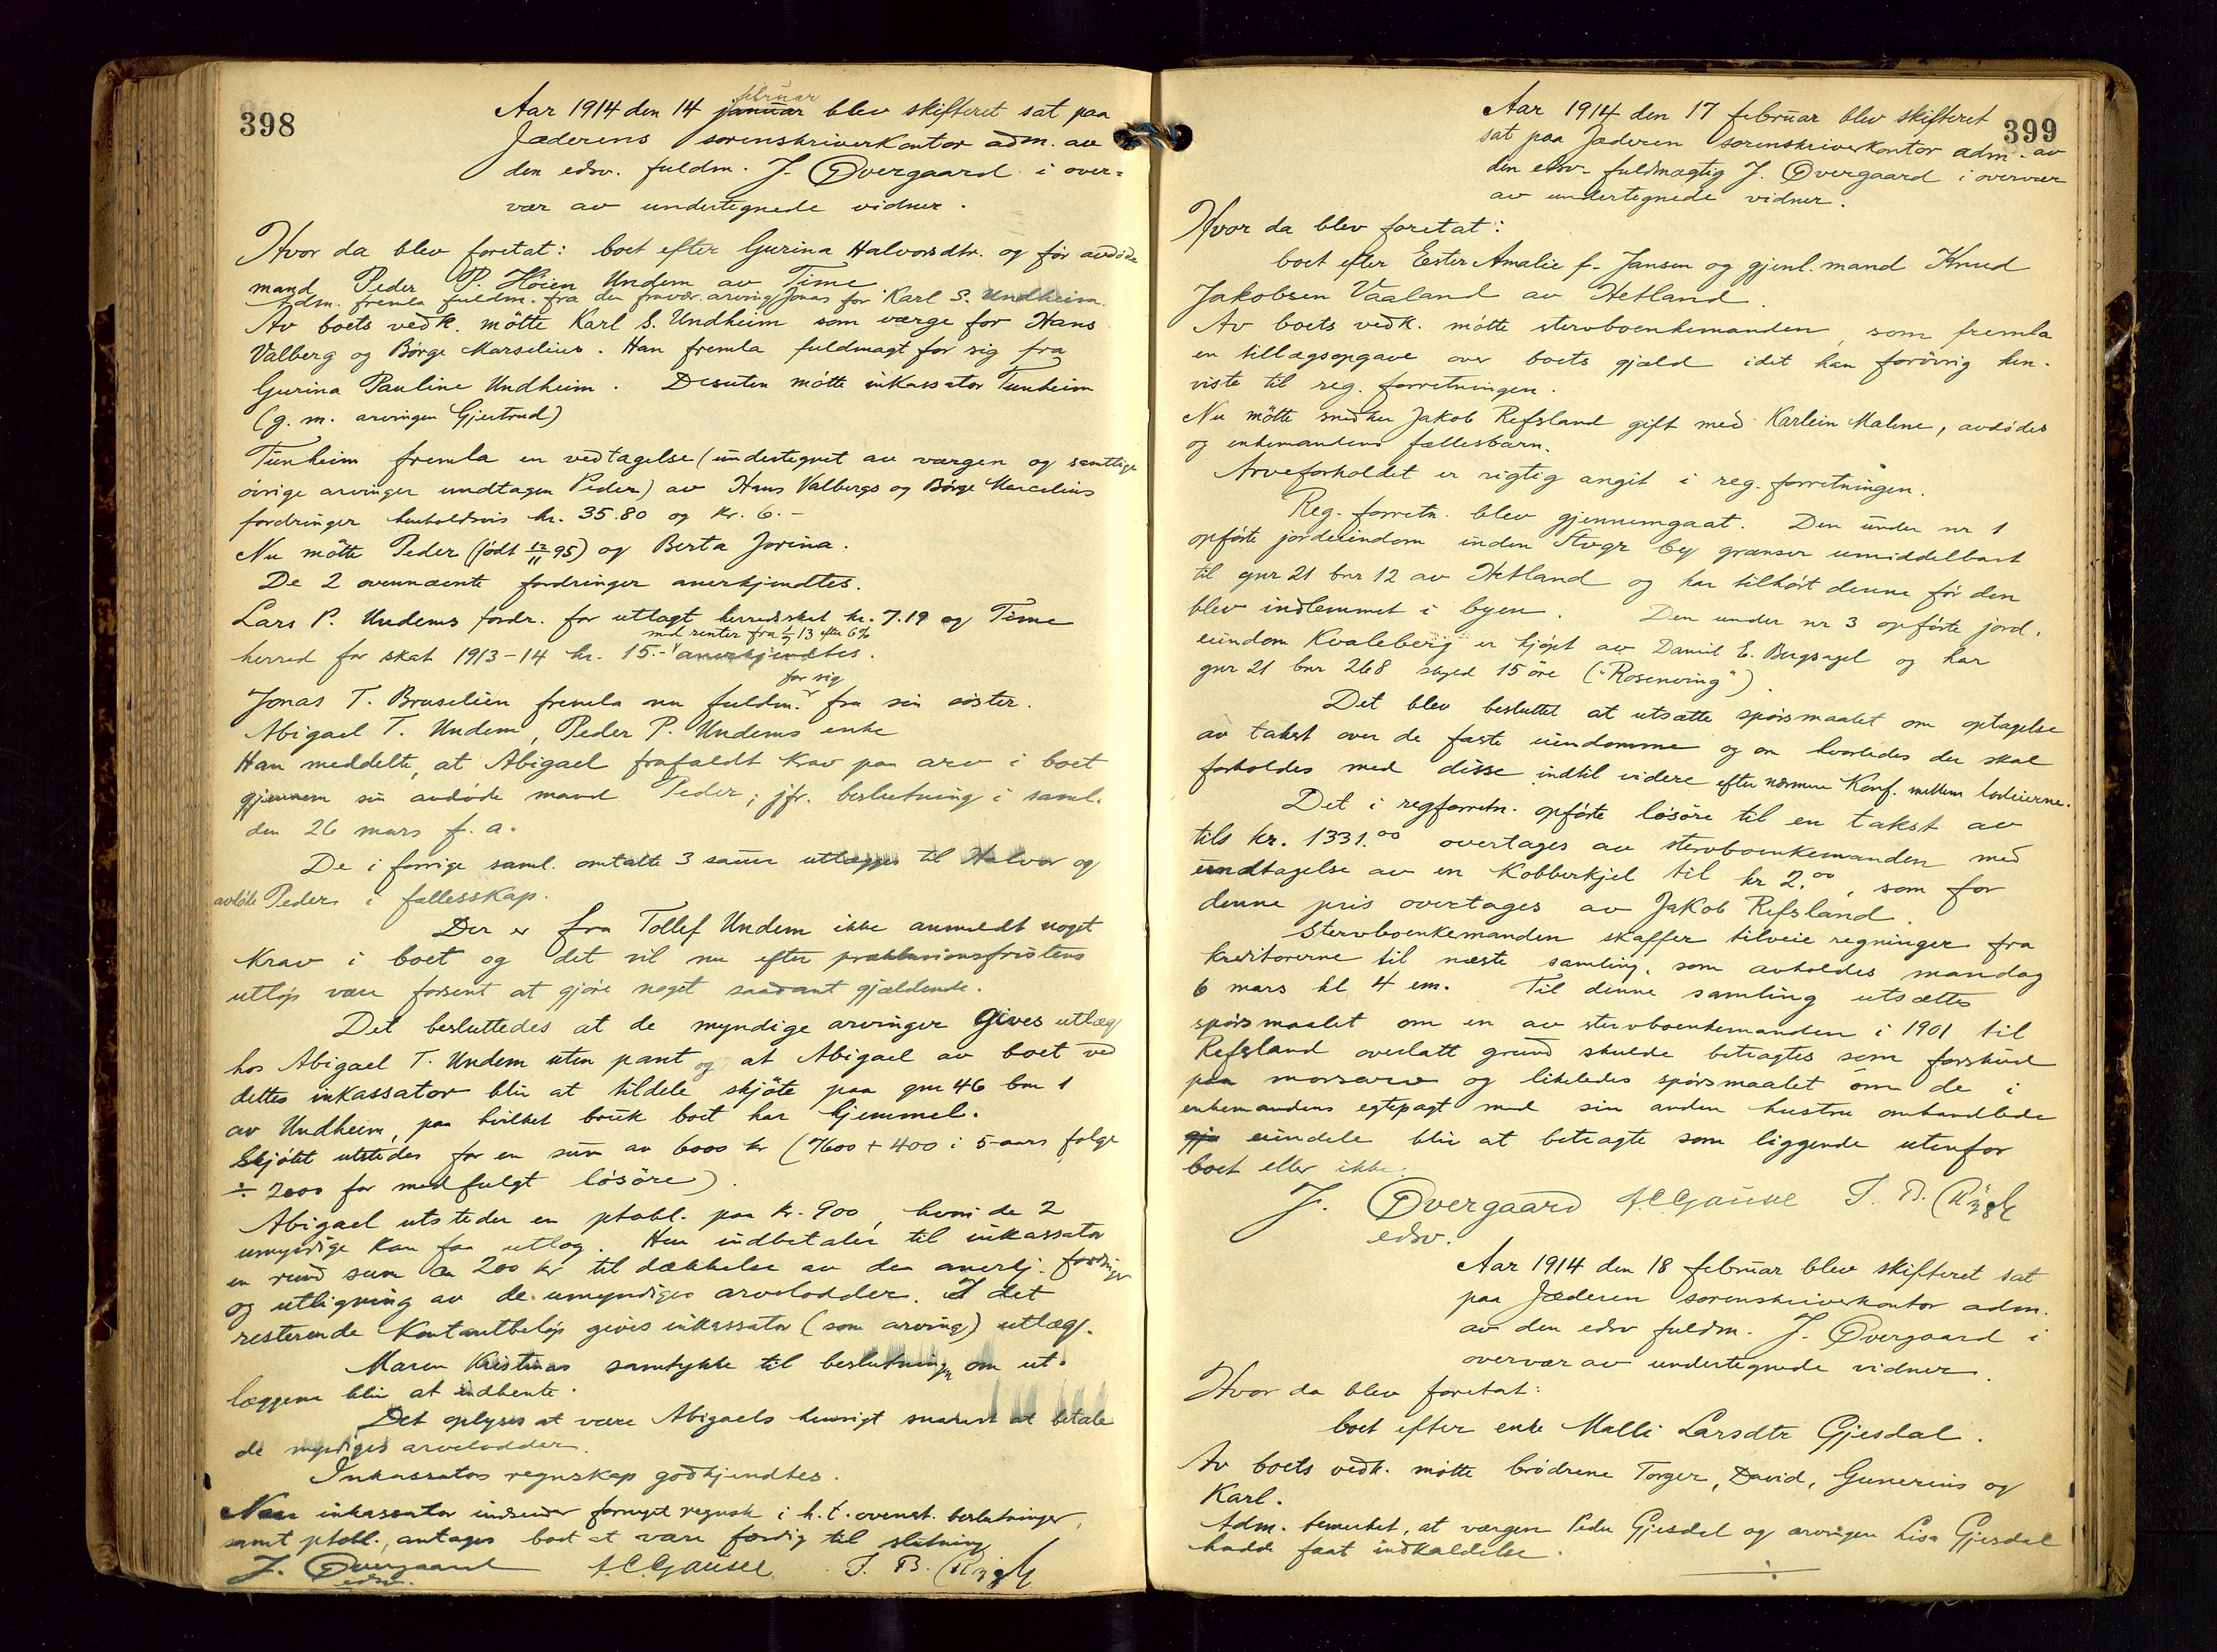 398
februar
Aar 1914 den 14 januar blev skifteret sat paa
Jæderens sorenskriverkontor adm. av
den edsv. fuldm. J. Øvergaard i over-
vær av undertegnede vidner.
Hvor da blev foretat: boet efter Gurina Halvorsdtr. og før avdøde
mand Peder P. Høien Undem av Time
Adm. fremla fuldm. fra den fravær. arving Jonas for Karl S. Undheim.
Av boets vedk. møtte Karl S. Undheim som værge for Hans
Valberg og Børge Marselius. Han fremla fuldmagt for sig fra
Gurina Pauline Undheim. Desuten møtte inkassator Tunheim
(g. m. arvingen Gjertrud)
Tunheim fremla en vedtagelse (undertegnet av værgen og samtlige
øvrige arvinger undtagen Peder) av Hans Valbergs og Børge Marcelius
fordringer henholdsvis kr. 35.80 og kr. 6.-
Nu møtte Peder (født 12/11 95) og Berta Jorina.
De 2 ovennævnte fordringer anerkjendtes.
Lars P. Undems fordr. for utlagt herredsskat kr. 7.19 og Time
med renter fra 1/7 13 efter 6%
herred for skat 1913-14 kr. 15.- anerkjendtes.
for sig
Jonas T. Bruselien fremla nu fuldm. fra sin søster.
Abigael T. Undem, Peder P. Undems enke
Han meddelte, at Abigael frafaldt krav paa arv i boet
gjennem sin avdøde mand Peder; jfr. beslutning i saml.
den 26 mars f. a.
De i forrige saml. omtalte 3 sauer utlægges til Halvor og
avdøde Peder i fællesskap.
Der er fra Tollef Undem ikke anmeldt noget
krav i boet og det vil nu efter præklusionsfristens
utløp være forsent at gjøre noget saadant gjældende.
Det besluttedes at de myndige arvinger gives utlæg
hos Abigael T. Undem uten pant og at Abigael av boet ved
dettes inkassator blir at tildele skjøte paa gnr 46 bnr 1
av Undheim, paa hvilket bruk boet har hjemmel.
Skjøtet utstedes for en sum av 6000 kr (7600 + 400 i 5-aars følge
÷ 2000 for medfulgt løsøre).
Abigael utsteder en ptobl. paa kr. 900, hvori de 2
umyndige kan faa utlæg. Hun indbetaler til inkassator
en rund sum av 200 kr til dækkelse av de anerkj. fordringer
og utligning av de umyndiges arvelodder. I det
resterende kontantbeløp gives inkassator (som arving) utlæg.
Maren Kristines samtykke til beslutningen om ut-
læggene blir at indhente.
Det oplyses at være Abigaels hensigt snarest at betale
de myndiges arvelodder.
Inkassators regnskap godkjendtes.
Naar inkassator indsender fornyet regnsk i h. t. ovenst. beslutninger,
samt ptobl., antages boet at være færdig til slutning
J. Øvergaard A.C. Gausel T. B.
edsv.
399
Aar 1914 den 17 februar blev skifteret
sat paa Jæderen sorenskriverkontor adm. av
den edsv. fuldmægtig J. Øvergaard i overvær
av undertegnede vidner.
Hvor da blev foretat:
boet efter Ester Amalie f. Jansen og gjenl. mand Knud
Jakobsen Vaaland av Hetland.
Av boets vedk. møtte stervboenkemanden, som fremla
en tillægsopgave over boets gjæld idet han forøvrig hen-
viste til reg. forretningen.
Nu møtte snedker Jakob Refsland gift med Karlein Malene, avdødes
og enkemandens fællesbarn.
Arveforholdet er rigtig angit i reg. forretningen.
Reg. forretn. blev gjennemgaat. Den under nr 1
opførte jordeiendom inden Stvgr by grænser umiddelbart
til gnr 21 bnr 12 av Hetland og har tilhørt denne før den
blev indlemmet i byen. Den under nr 3 opførte jord-
eiendom Kvaleberg er kjøpt av Daniel E. Bergsagel og har
gnr 21 bnr 268 skyld 15 øre ("Rosenving").
Det blev besluttet at utsætte spørsmaalet om optagelse
av takst over de faste eiendomme og om hvorledes der skal
forholdes med disse indtil videre efter nærmere konf. mellem lodeierne.
Det i regforretn. opførte løsøre til en takst av
tils kr. 1331.00 overtages av stervboenkemanden med
undtagelse av en kobberkjel til kr 2.00, som for
denne pris overtages av Jakob Refsland.
Stervboenkemanden skaffer tilveie regninger fra
kreditorerne til næste samling, som avholdes mandag
6 mars kl 4 em. Til denne samling utsættes
spørsmaalet om en av stervboenkemanden i 1901 til
Refsland overlatt grund skulde betragtes som forskud
paa morsarv og likeledes spørsmaalet om de i
enkemandens egtepagt med sin anden hustru omhandlede
eiendele blir at betragte som liggende utenfor
boet eller ikke.
J. Øvergaard A.C. Gausel T. B.
edsv.
Aar 1914 den 18 februar blev skifteret sat
paa Jæderen sorenskriverkontor adm.
av den edsv fuldm. J. Øvergaard i
overvær av undertegnede vidner.
Hvor da blev foretat:
boet efter enke Malli Larsdtr Gjesdal.
Av boets vedk. møtte brødrene Torger, David, Gunerius og
Karl.
Adm. bemerket, at værgen Peder Gjesdal og arvingen Lisa Gjesdal
hadde faat indkaldelse.